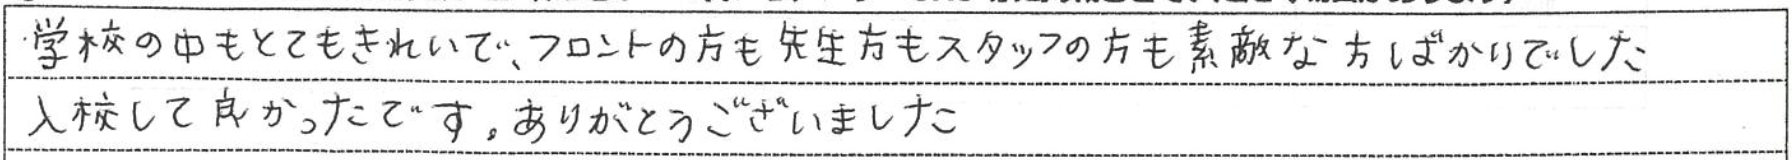 学校の中もとてもきれいで、フロントの方も先生方もスタッフの方も素敵な方ばかりでした
入校して良かったです。ありがとうございました